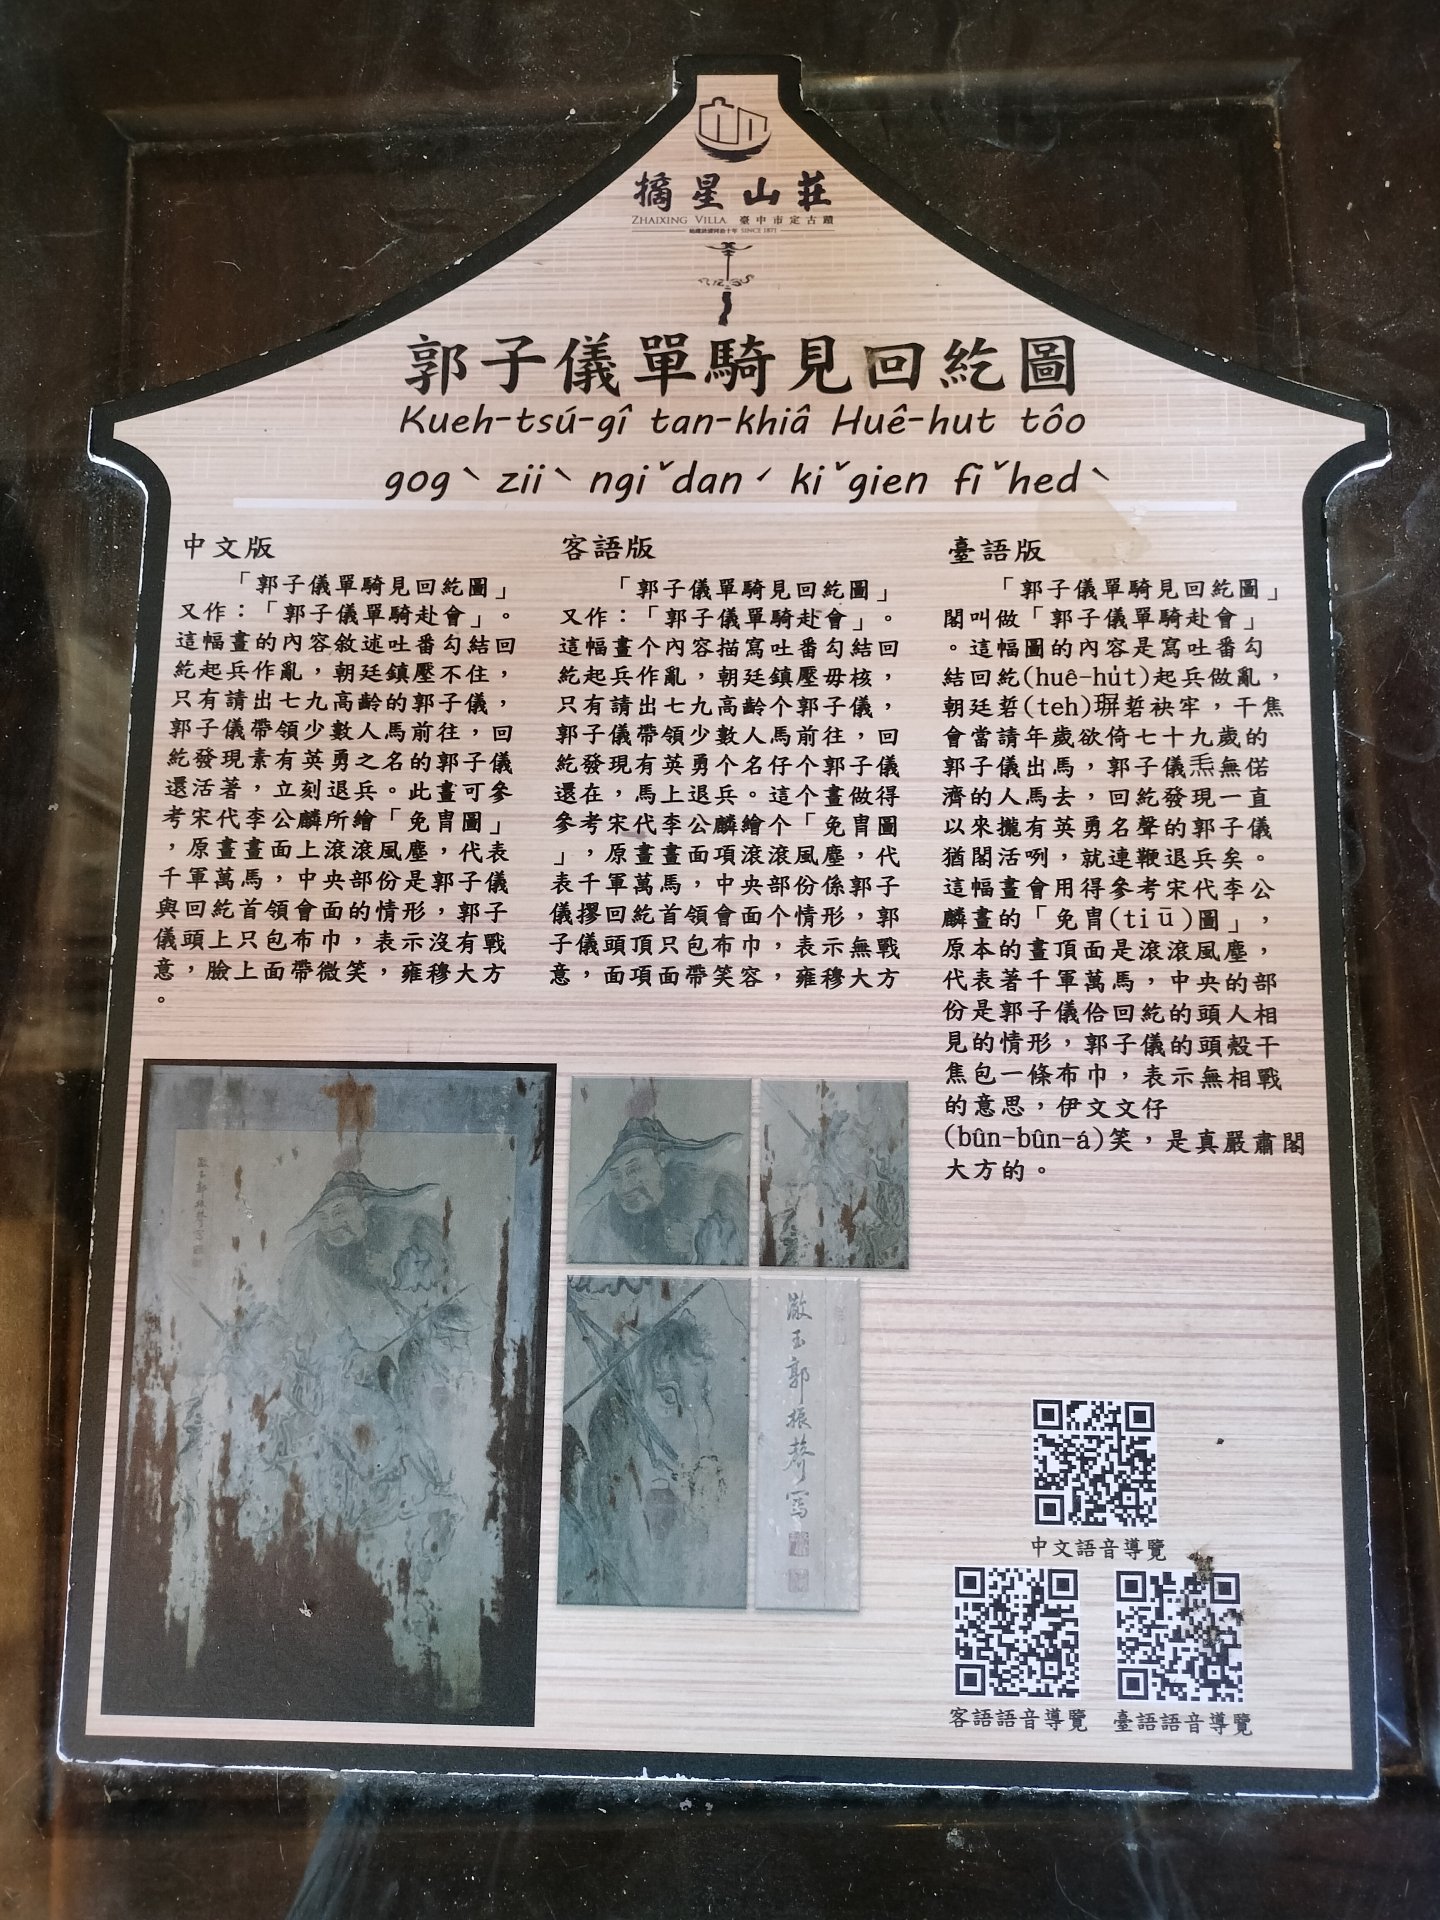 摘星山莊
ZHAIXING VILLA 臺中市定古蹟
SINCE 1871
郭子儀單騎見回紇圖
Kueh-tsú-gî tan-khiâ Huê-hut tôo
gogˋ ziiˋ ngiˇdanˊ kiˇgien fiˇhedˋ
中文版
「郭子儀單騎見回紇圖」
又作：「郭子儀單騎赴會」。
這幅畫的內容敘述吐番勾結回
紇起兵作亂，朝廷鎮壓不住，
只有請出七九高齡的郭子儀，
郭子儀帶領少數人馬前往，回
紇發現素有英勇之名的郭子儀
還活著，立刻退兵。此畫可參
考宋代李公麟所繪「免冑圖」
，原畫畫面上滾滾風塵，代表
千軍萬馬，中央部份是郭子儀
與回紇首領會面的情形，郭子
儀頭上只包布巾，表示沒有戰
意，臉上面帶微笑，雍穆大方
。
客語版
「郭子儀單騎見回紇圖」
又作：「郭子儀單騎赴會」。
這幅畫个內容描寫吐番勾結回
紇起兵作亂，朝廷鎮壓毋核，
只有請出七九高齡个郭子儀，
郭子儀帶領少數人馬前往，回
紇發現有英勇个名仔个郭子儀
還在，馬上退兵。這个畫做得
參考宋代李公麟繪个「免冑圖
」，原畫畫面項滾滾風塵，代
表千軍萬馬，中央部份係郭子
儀摎回紇首領會面个情形，郭
子儀頭頂只包布巾，表示無戰
意，面項面帶笑容，雍穆大方
臺語版
「郭子儀單騎見回紇圖」
閣叫做「郭子儀單騎赴會」
。這幅圖的內容是寫吐番勾
結回紇(huê-hu̍t)起兵做亂，
朝廷硩(teh)硩袂牢，干焦
會當請年歲欲倚七十九歲的
郭子儀出馬，郭子儀𤆬無偌
濟的人馬去，回紇發現一直
以來攏有英勇名聲的郭子儀
猶閣活咧，就連鞭退兵矣。
這幅畫會用得參考宋代李公
麟畫的「免冑(tiū)圖」，
原本的畫頂面是滾滾風塵，
代表著千軍萬馬，中央的部
份是郭子儀佮回紇的頭人相
見的情形，郭子儀的頭殼干
焦包一條布巾，表示無相戰
的意思，伊文文仔
(bûn-bûn-á)笑，是真嚴肅閣
大方的。
澂玉郭振聲寫
中文語音導覽
客語語音導覽
臺語語音導覽